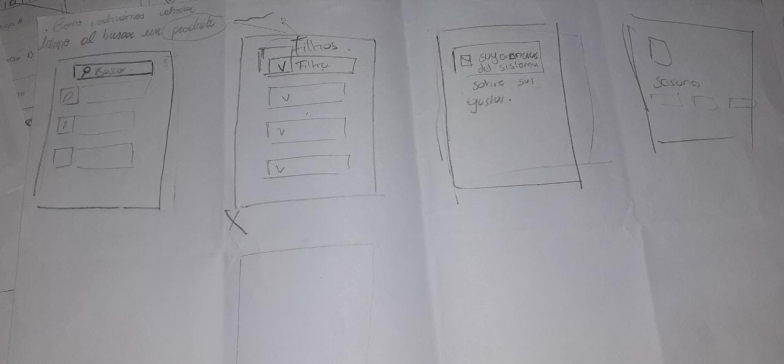 . Como podriamos ahorrar
tiempo al buscar un producto
Buscar
Filtros.
v Filtro
v
v
v
X
sugerencias
del sistema
sobre sus
gustos.